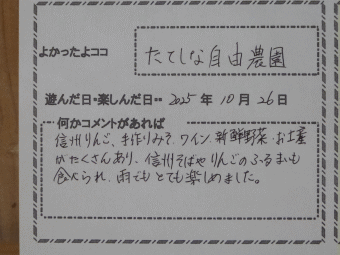 よかったよココ たてしな自由農園
遊んだ日・楽しんだ日・・ 2025 年 10 月 26 日
何かコメントがあれば
信州りんご、手作りみそ、ワイン、新鮮野菜、お土産
がたくさんあり、信州そばやりんごのふるまいも
食べられ、雨でもとても楽しめました。